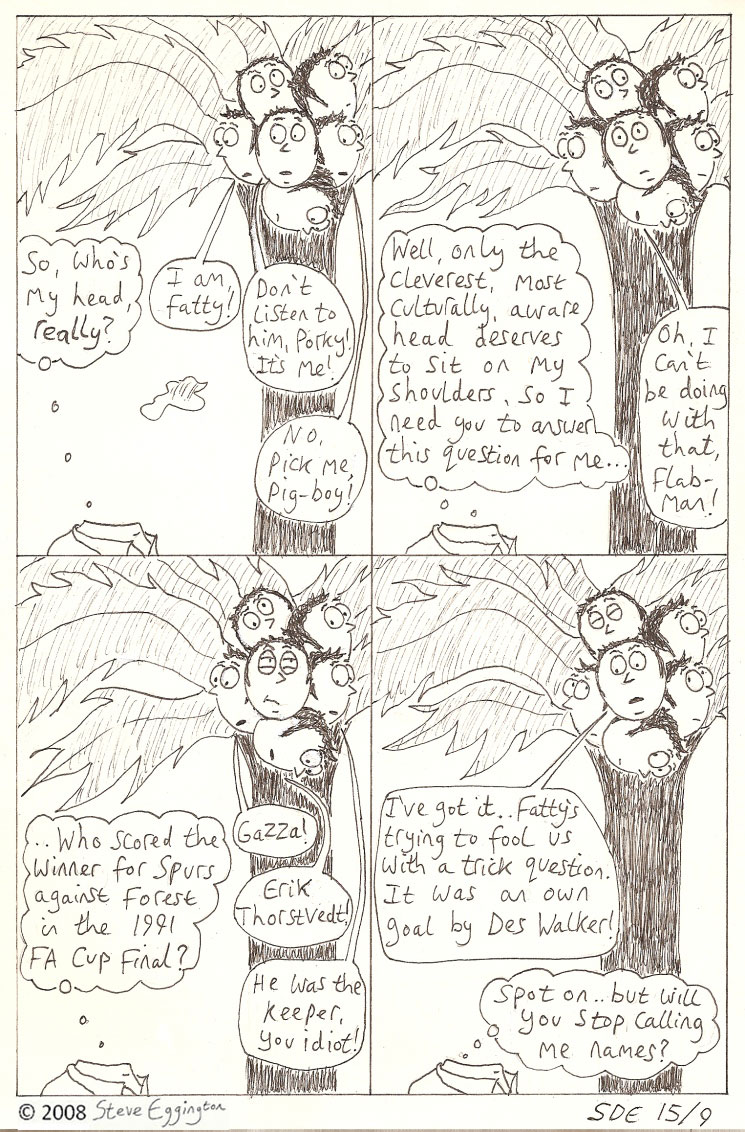 So, Who's
My head,
really?
I am,
Fatty!
Don't
Listen to
him, Porky!
It's Me!
No,
Pick Me,
Pig-boy!
Well, only the
cleverest, most
culturally, aware
head deserves
to sit on My
Shoulders. So I
need you to answer
this question for Me...
Oh, I
Can't
be doing
With
that,
Flab-
Man!
..Who scored the
Winner for Spurs
against Forest
in the 1991
FA Cup Final?
Gazza!
Erik
Thorstvedt!
He Was the
keeper,
you idiot!
I've got it.. Fatty's
trying to fool us
with a trick question.
It was an own
goal by Des Walker!
Spot on.. but will
you stop calling
Me names?
© 2008 Steve Eggington
SDE 15/9